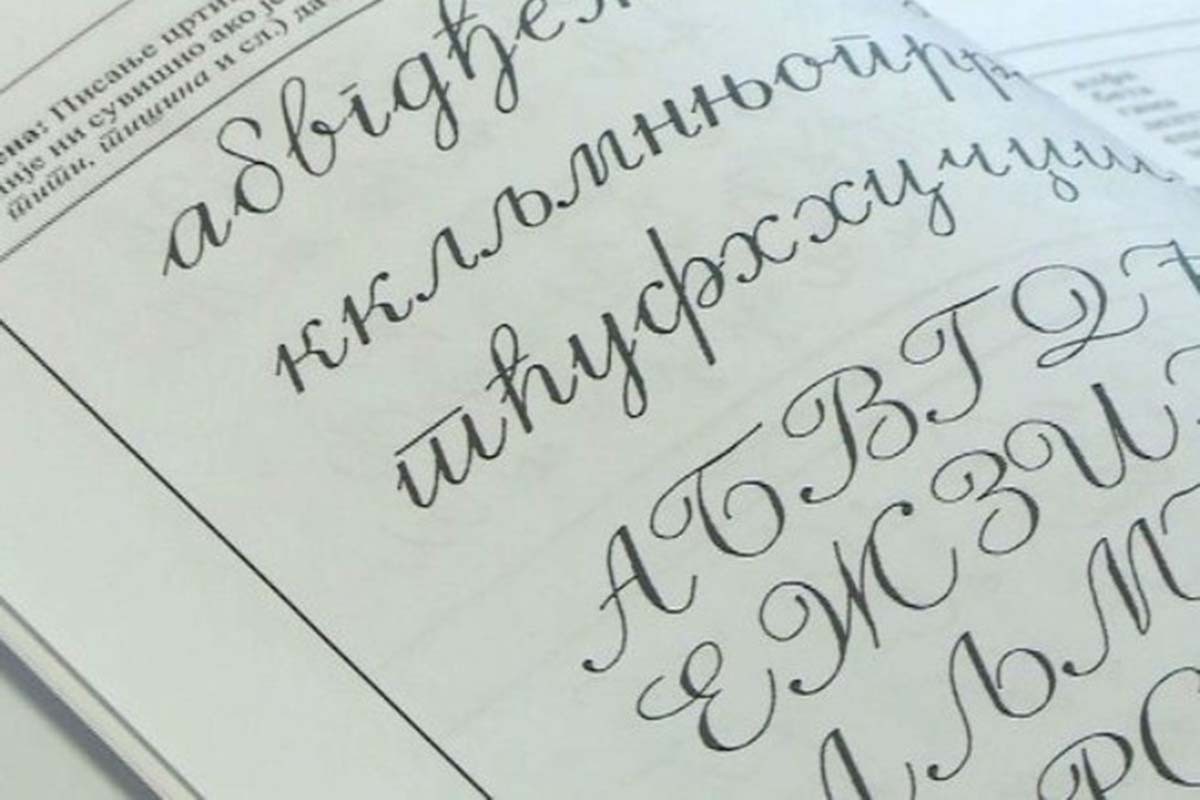 Писање црти
није ни сувишно ако је
тити, тишина и сл.) да
а б в г д ђ е
к к л љ м н њ о п р р
т ћ у ф х х ц ч џ ш
А Б В Г Д
Е Ж З И
Л Љ М
Р С